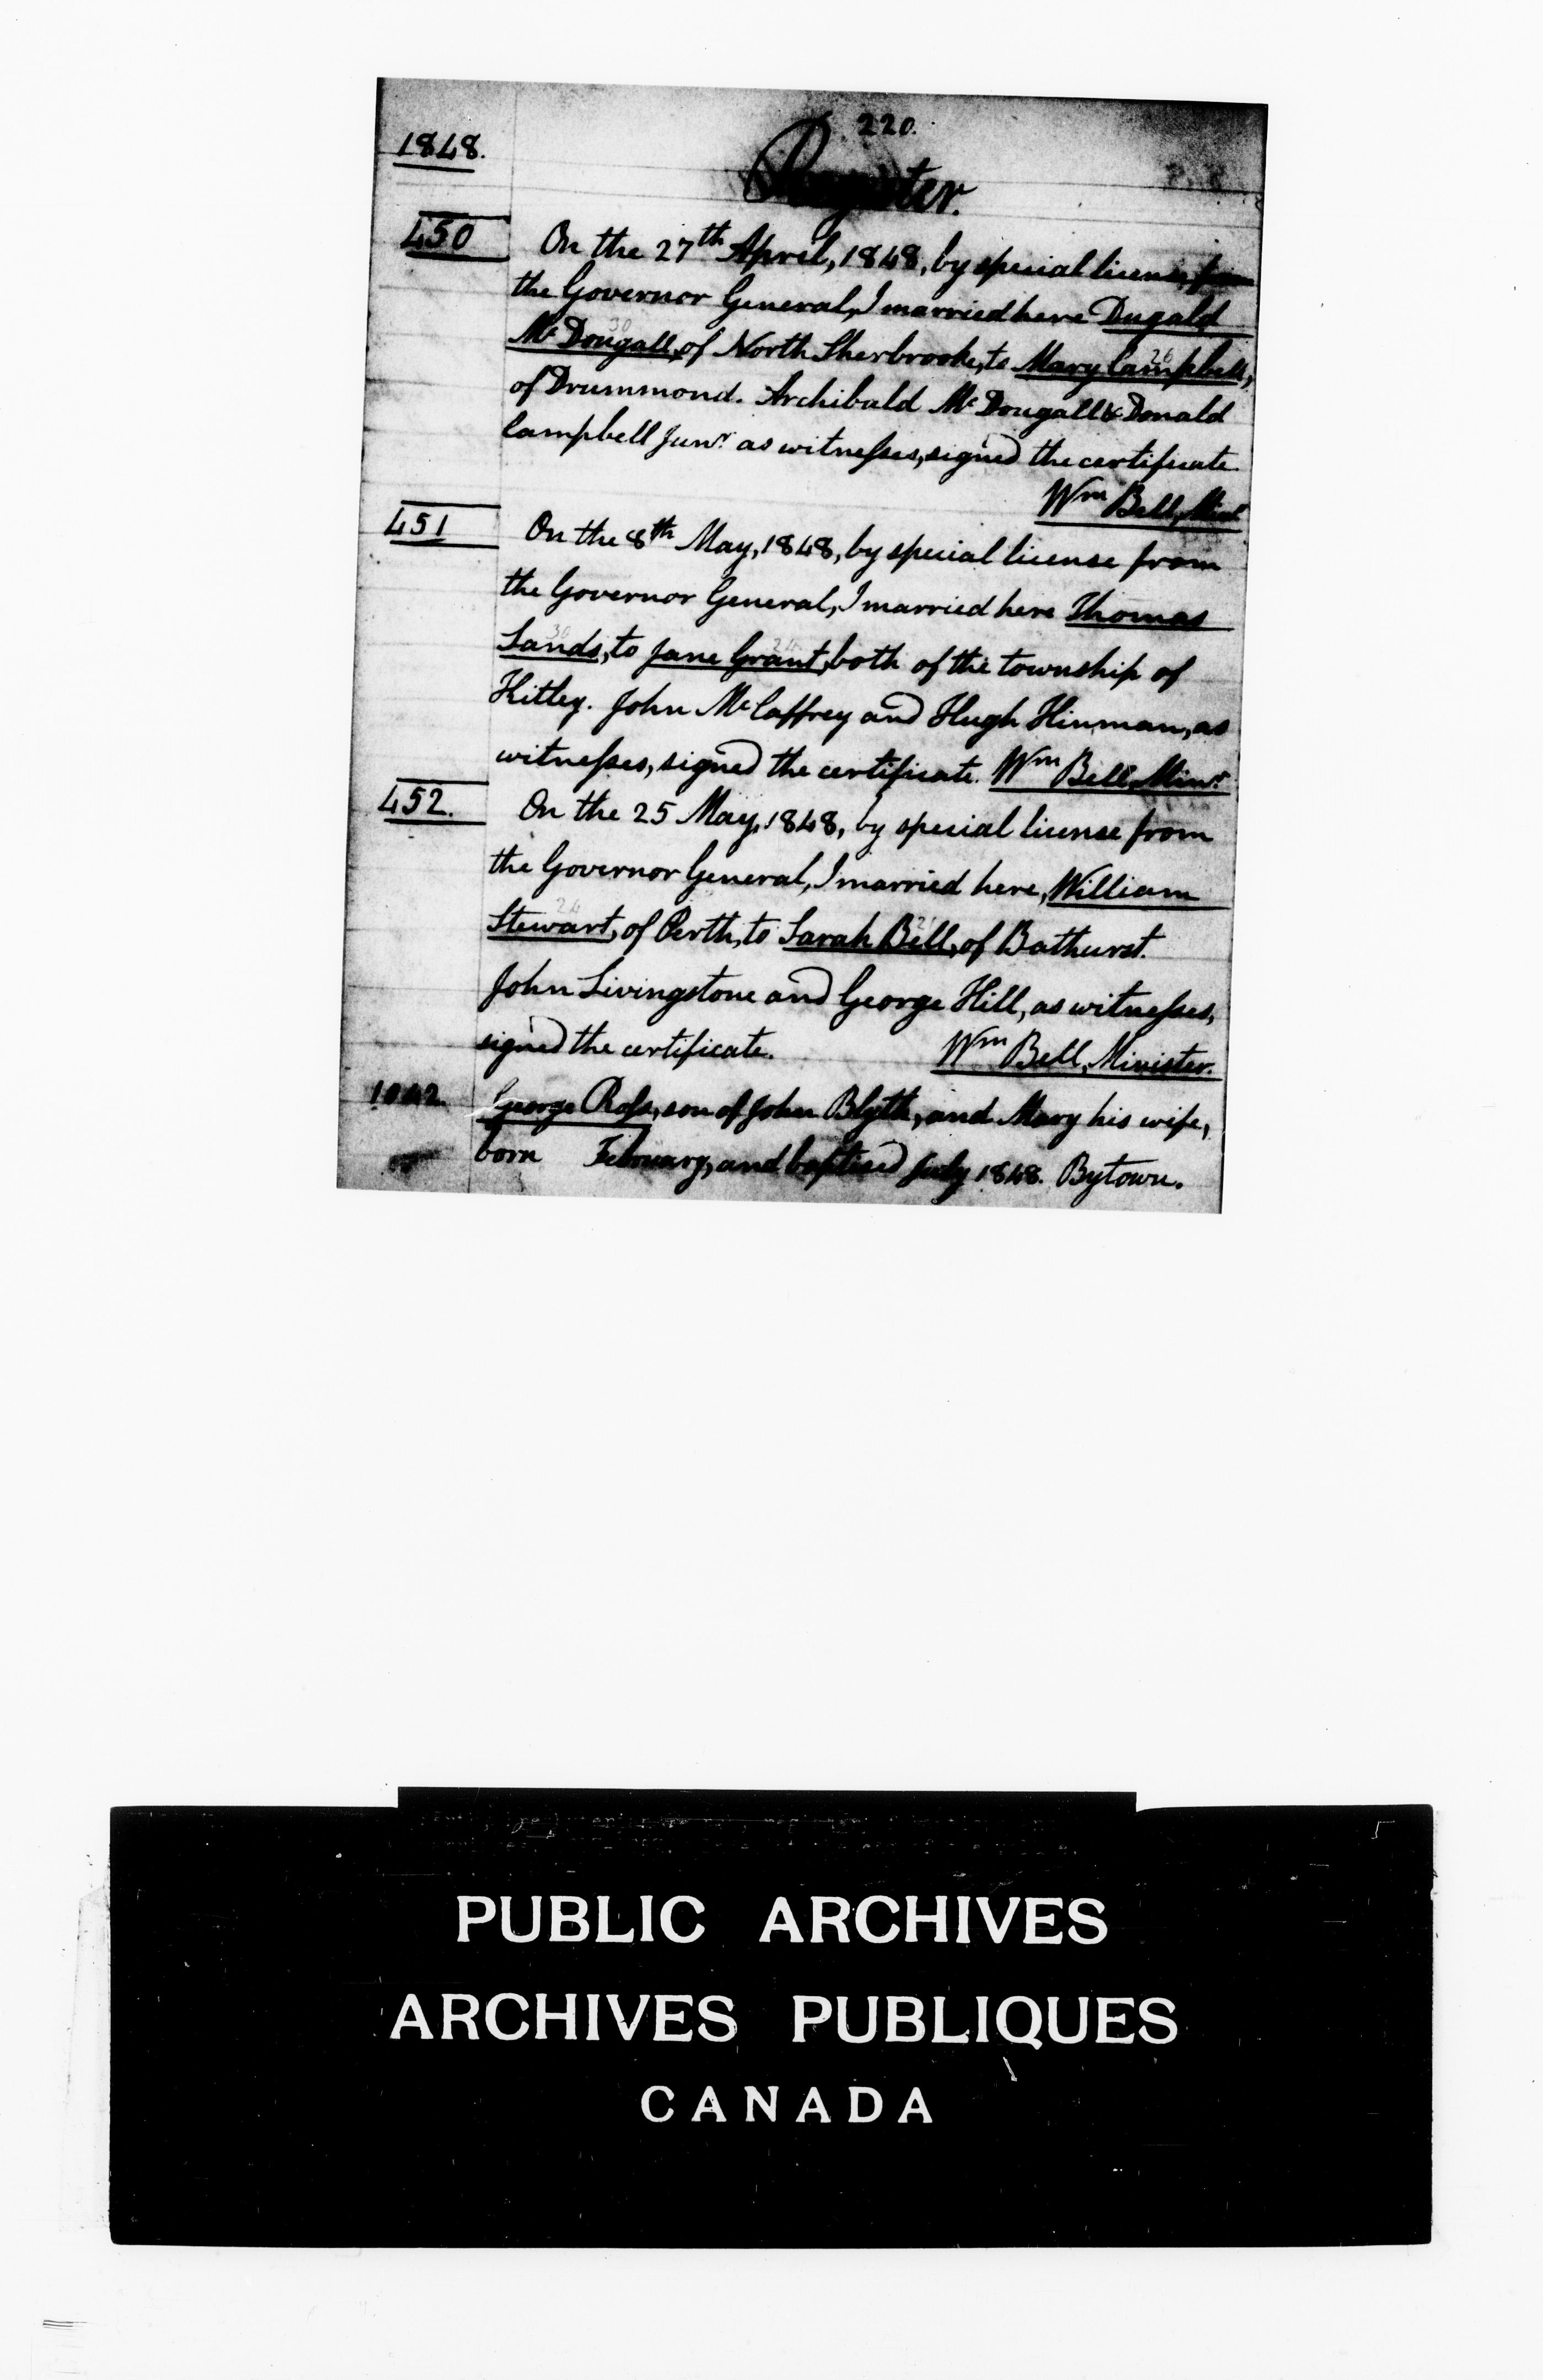 220.
1848.
Register.
450 On the 27th April, 1848, by special license from
the Governor General, I married here Dugald
30 26
Mc Dougall, of North Sherbrooke, to Mary Campbell,
of Drummond. Archibald Mc Dougall & Donald
Campbell Junr. as witnesses, signed the certificate.
Wm Bell, Minr
451 On the 8th May, 1848, by special license from
the Governor General, I married here Thomas
30 24
Sands, to Jane Grant, both of the township of
Kitley. John McCaffrey and Hugh Hinman, as
witnesses, signed the certificate. Wm Bell, Minr.
452. On the 25 May, 1848, by special license from
the Governor General, I married here, William
24
Stewart, of Perth, to Sarah Bell, of Bathurst.
John Livingstone and George Hill, as witnesses,
signed the certificate. Wm Bell, Minister.
George Ross, son of John Blyth, and Mary his wife,
born February, and baptised July 1848. Bytown.
PUBLIC ARCHIVES
ARCHIVES PUBLIQUES
CANADA